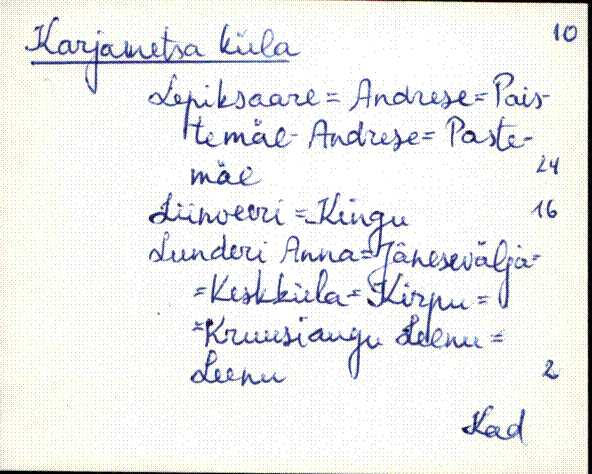 10
Karjametsa küla
Lepiksaare = Andrese = Pais-
temäe - Andrese = Paste-
mäe 24
Liinveeri = Kingu 16
Lunderi Anna = Jänesevälja =
= Keskküla = Kirpu =
= Kruusiaugu Leenu =
Leenu 2
Kad